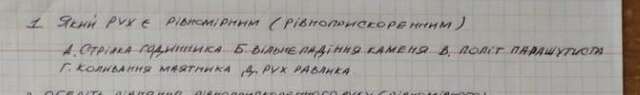 1 Який рух є рівномірним (рівноприскоренним)
А. Стрілка годинника Б. Вільне падіння каменя В. Політ парашутиста
Г. Коливання маятника Д. Рух равлика